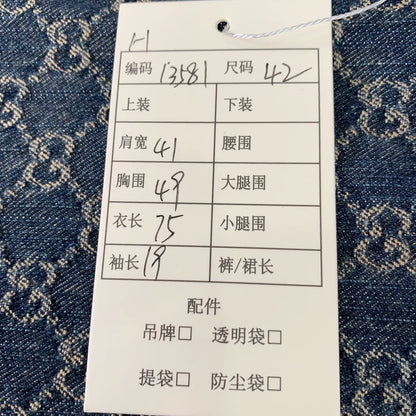 编码 13581 尺码 42
上装 下装
肩宽 41 腰围
胸围 49 大腿围
衣长 75 小腿围
袖长 19 裤/裙长
配件
吊牌□ 透明袋□
提袋□ 防尘袋□